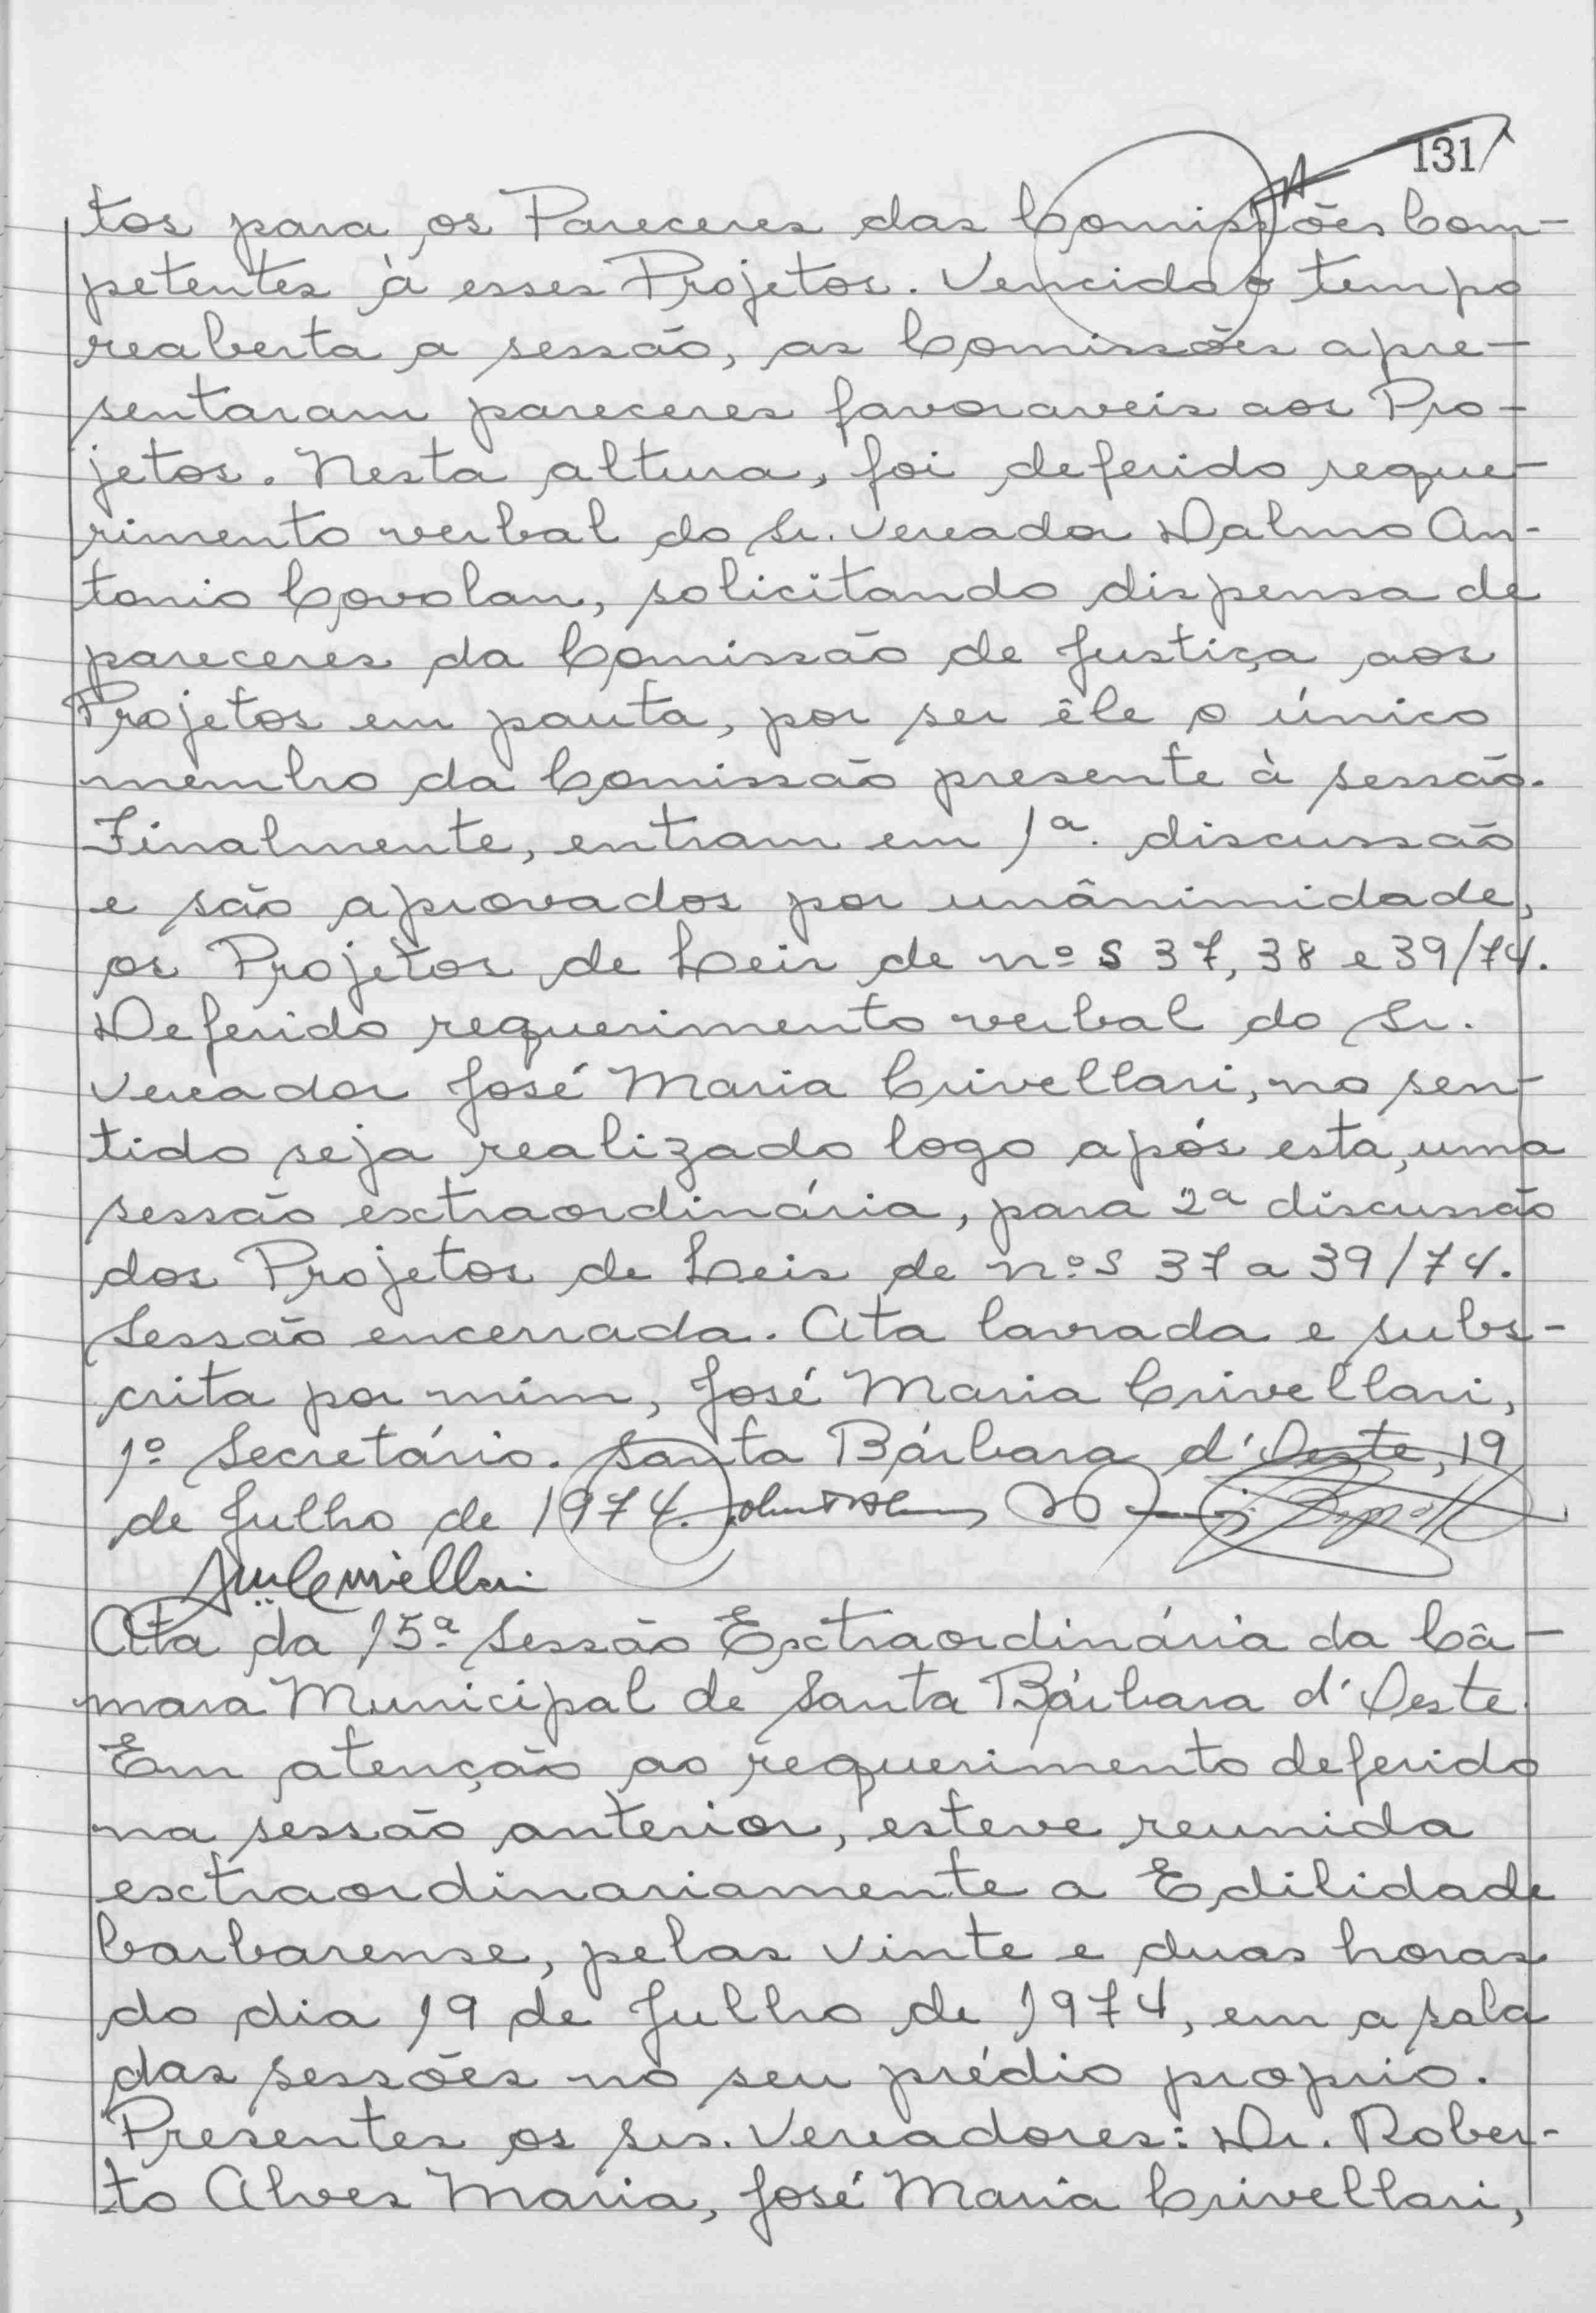 131
tos para os Pareceres das Comissões Com-
petentes à esses Projetos. Vencido o tempo
reaberta a sessão, as Comissões apre-
sentaram pareceres favoraveis aos Pro-
jetos. Nesta altura, foi deferido reque-
rimento verbal do Sr. Vereador Dalmo An-
tonio Covolan, solicitando dispensa de
pareceres da Comissão de Justiça aos
Projetos em pauta, por ser êle o único
membro da Comissão presente à sessão.
Finalmente, entram em 1ª. discussão
e são aprovados por unânimidade,
os Projetos de Leis de nºs 37, 38 e 39/74.
Deferido requerimento verbal do Sr.
Vereador José Maria Crivellari, no sen-
tido seja realizado logo após esta, uma
sessão extraordinária, para 2ª discussão
dos Projetos de Leis de nºs 37 a 39/74.
Sessão encerrada. Ata lavrada e subs-
crita por mim, José Maria Crivellari,
1º Secretário. Santa Bárbara d'Oeste, 19
de Julho de 1974.
Ata da 15ª Sessão Extraordinária da Câ-
mara Municipal de Santa Bárbara d'Oeste.
Em atenção ao requerimento deferido
na sessão anterior, esteve reunida
extraordinariamente a Edilidade
barbarense, pelas vinte e duas horas
do dia 19 de Julho de 1974, em a sala
das sessões no seu prédio proprio.
Presentes os srs. Vereadores: Dr. Rober-
to Alves Maria, José Maria Crivellari,